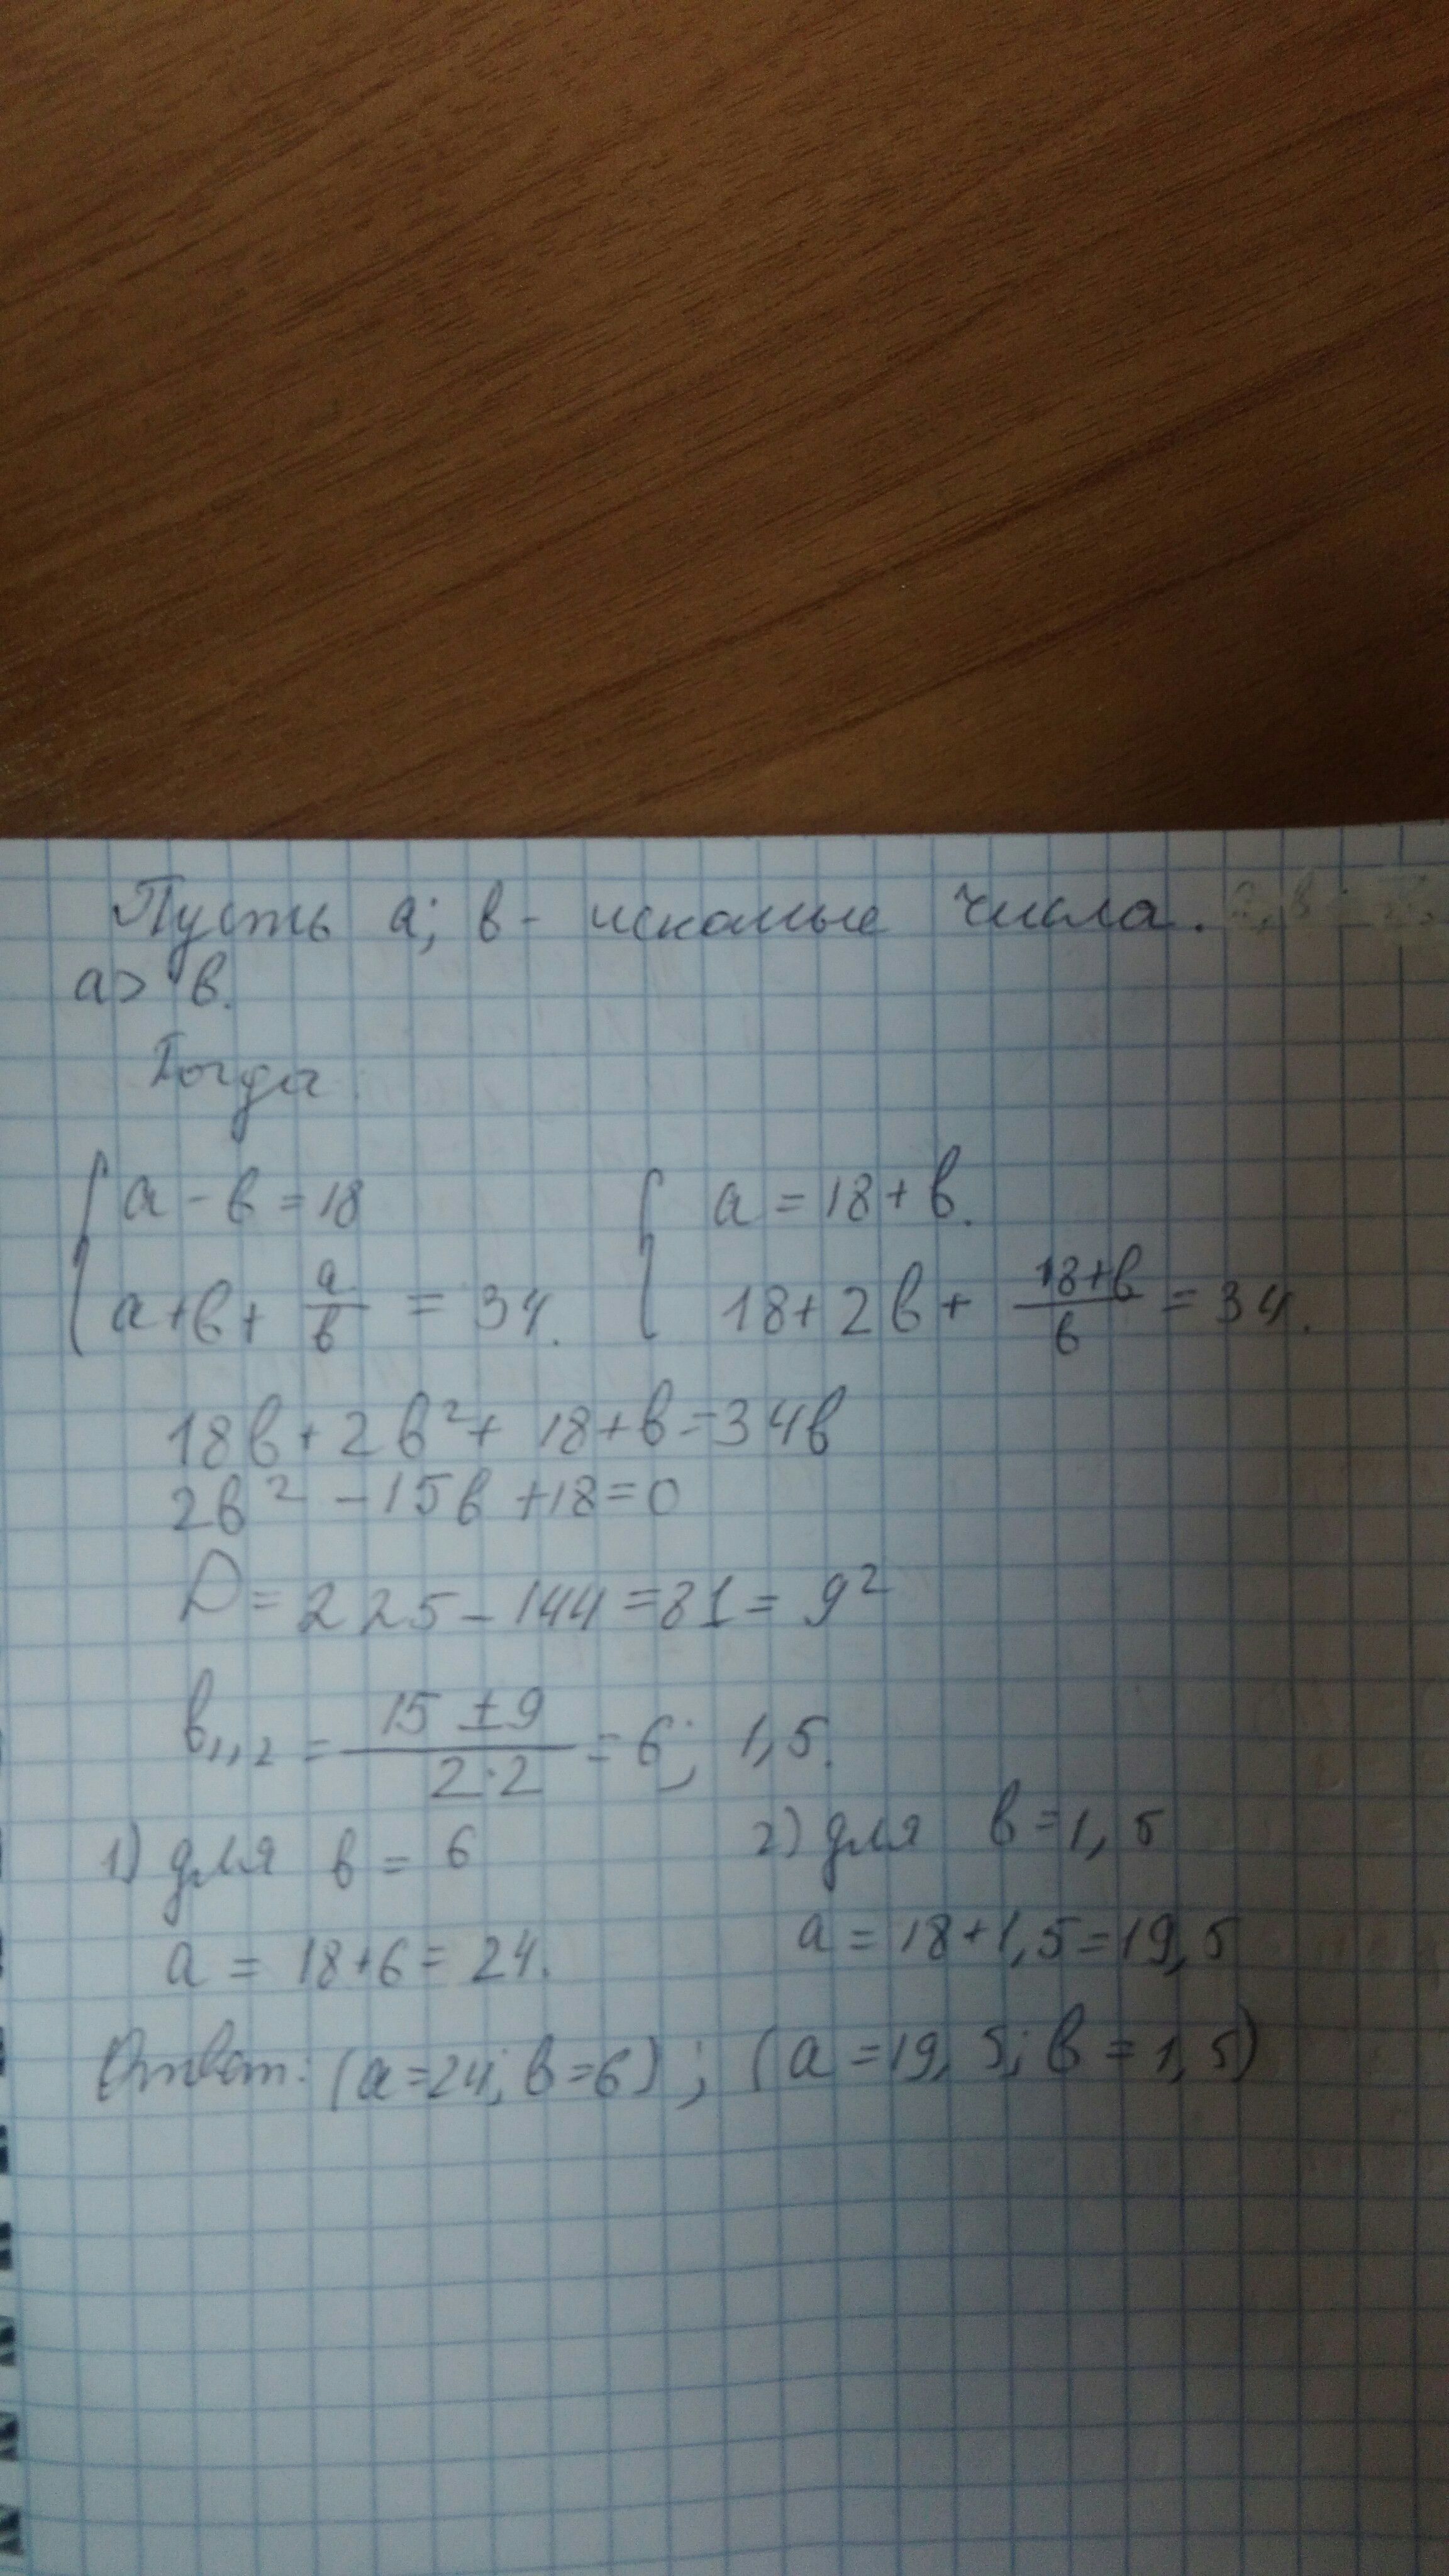 Пусть а; в - искомые числа.
а > в.
Тогда
а - в = 18
а + в + а/в = 34.
а = 18 + в.
18 + 2в + (18+в)/в = 34.
18в + 2в² + 18 + в = 34в
2в² - 15в + 18 = 0
D = 225 - 144 = 81 = 9²
в₁,₂ = (15 ± 9)/(2·2) = 6; 1,5.
1) для в = 6
а = 18 + 6 = 24.
2) для в = 1,5
а = 18 + 1,5 = 19,5
Ответ: (а = 24; в = 6); (а = 19,5; в = 1,5)